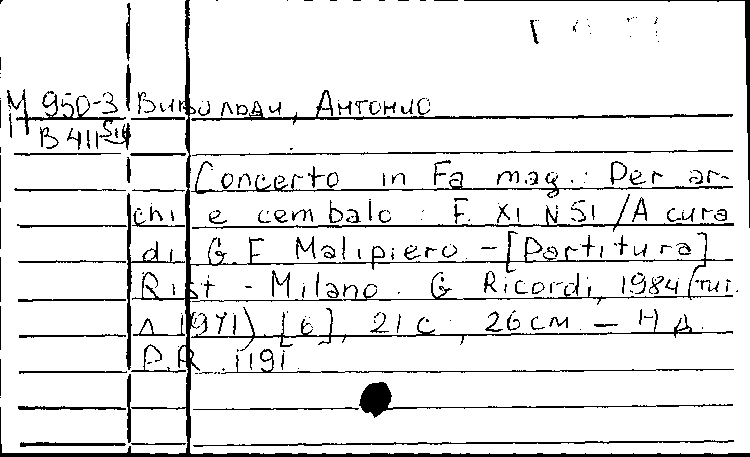 М 950-3 Вивальди, Антонио
В 411
Concerto in Fa mag.: Per ar-
chi e cembalo : F. XI N 51 / A cura
di G. F. Malipiero - [Partitura]
Rist - Milano. G Ricordi, 1984 (тит.
л 1971) [6], 21 с, 26 см - Н д.
P.R. 1191